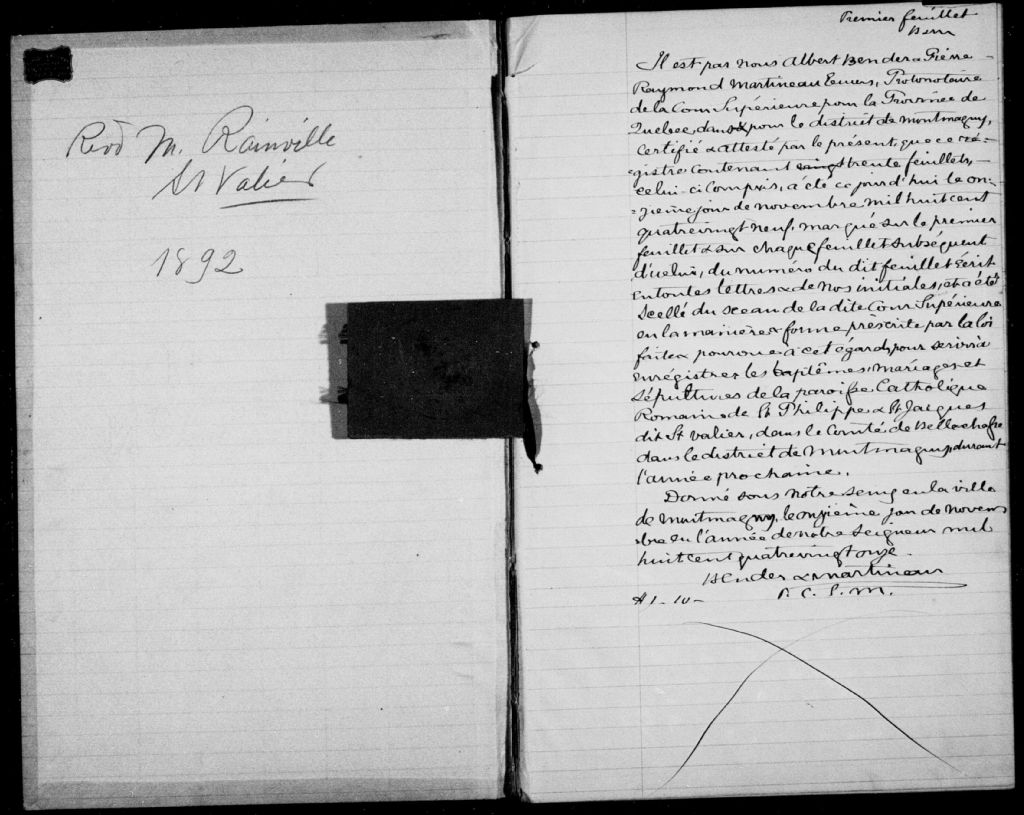 Revd M. Rainville
St Valier
1892
Premier feuillet
Il est par nous Albert Bender & Pierre
Raymond Martineau Ecuiers, Protonotaire
de la Cour Supérieure pour la Province de
Québec, dans & pour le district de Montmagny,
certifié & attesté par le présent, que ce ré-
gistre contenant vingt trente feuillets,
celui-ci compris, a été ce jour d'hui le on-
zième jour de novembre mil huit cent
quatrevingt neuf, marqué sur le premier
feuillet & sur chaque feuillet subséquent
d'icelui, du numéro du dit feuillet écrit
en toutes lettres & de nos initiales, et a été
scellé du sceau de la dite Cour Supérieure
en la manière & forme préscrite par la loi
faite & pourvue à cet égard, pour servir à
enrégistrer les baptêmes, mariages et
sépultures de la paroisse Catholique
Romaine de St Philippe & St Jacques
dit St Valier, dans le Comté de Bellechasse
dans le district de Montmagny durant
l'année prochaine.
Donné sous notre seing en la ville
de Montmagny, le onzième jour de Novem
bre en l'année de notre Seigneur mil
huit cent quatrevingt onze.
Bender & Martineau
P. C. S. M.
$1-10-